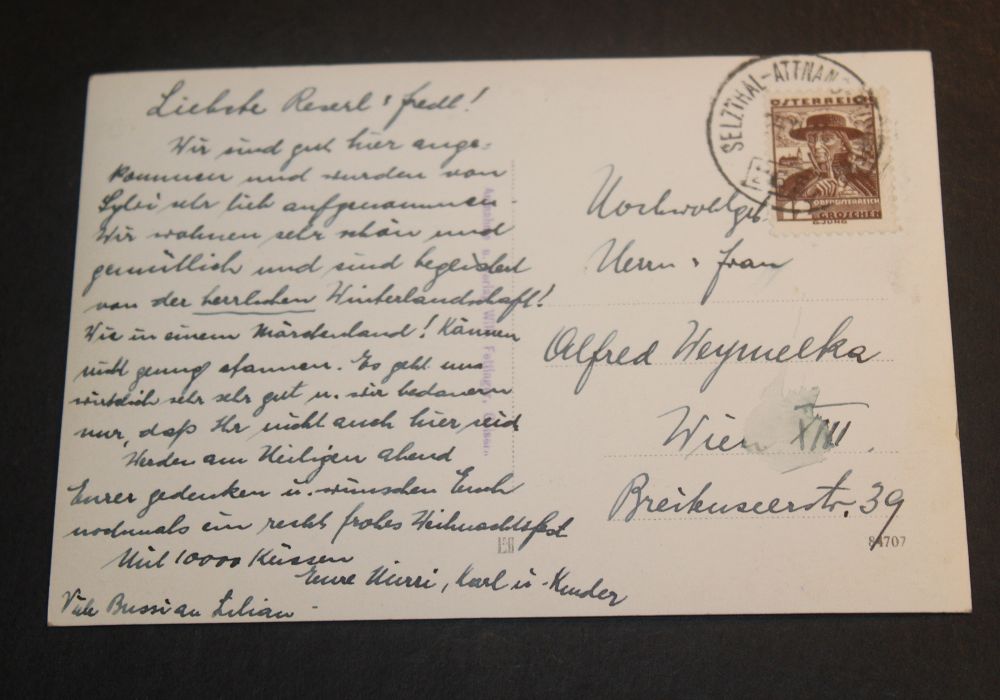 Liebste Reserl & Fredl!
Wir sind gut hier ange=
kommen und wurden von
Sylvi sehr lieb aufgenommen.
Wir wohnen sehr schön und
gemütlich und sind begeistert
von der herrlichen Winterlandschaft!
Wie in einem Märchenland! Können
nicht genug staunen. Es geht uns
wirklich sehr sehr gut u. wir bedauern
nur, daß Ihr nicht auch hier seid
Werden am Heiligen Abend
Eurer gedenken u. wünschen Euch
nochmals ein recht frohes Weihnachtsfest
Mit 10000 Küssen
Eure Mirri, Karl u. Kinder
Viele Bussi an Lilian
SELZTHAL-ATTNANG
ÖSTERREICH
OBERÖSTERREICH
GROSCHEN
Hochwohlgeb
Herrn & Frau
Alfred Weymelka
Wien XIII.
Breitenseerstr. 39
84707